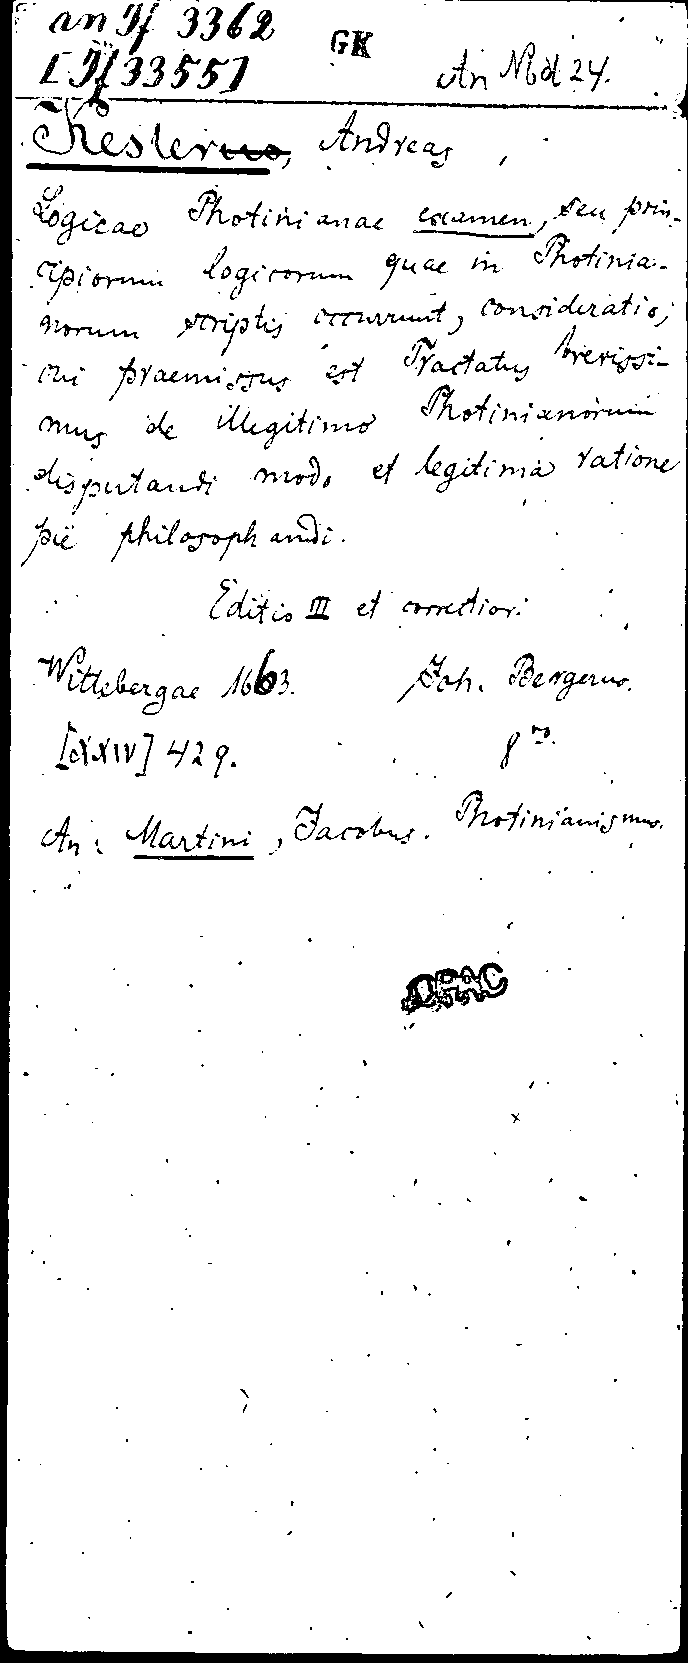 an If 3362
GK
[If 3355]
An Md 24.
Keslerus, Andreas,
Logicae Photinianae examen, seu prin-
cipiorum logicorum quae in Photinia-
norum scriptis occurrunt, consideratio,
cui praemissus est Tractatus brevissi-
mus de illegitimo Photinianorum
disputandi modo et legitima ratione
pie philosophandi.
Editio III et correctior.
Wittebergae 1663. Joh. Bergerus.
[XXIV] 429. 8ᵛᵒ.
An: Martini, Jacobus. Photinianismus.
OPAC